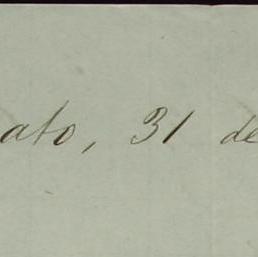 ato, 31 de